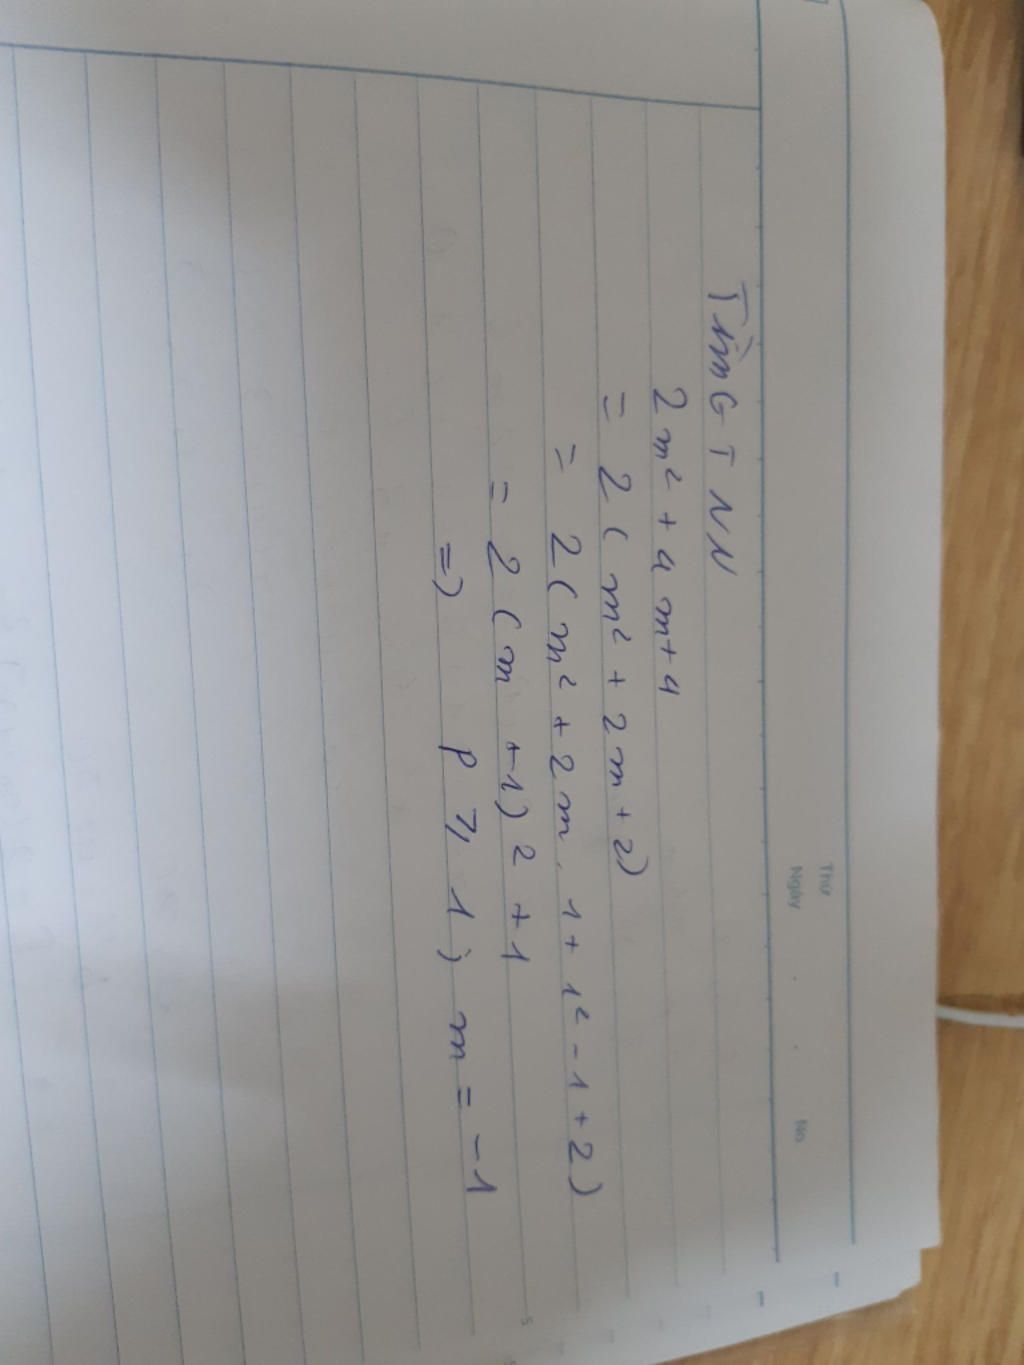 Thứ
Ngày . . No
Tìm GTNN
2m² + 4m+4
= 2(m² + 2m + 2)
= 2(m² + 2m.1 + 1² - 1 + 2)
= 2(m +1)² + 1
=> P ⩾ 1; m = -1
5